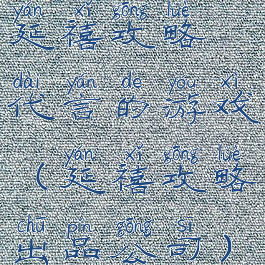 yán xǐ gōng lüè
延禧攻略
dài yán de yóu xì
代言的游戏
yán xǐ gōng lüè
（延禧攻略
chū pǐn gōng sī
出品公司）